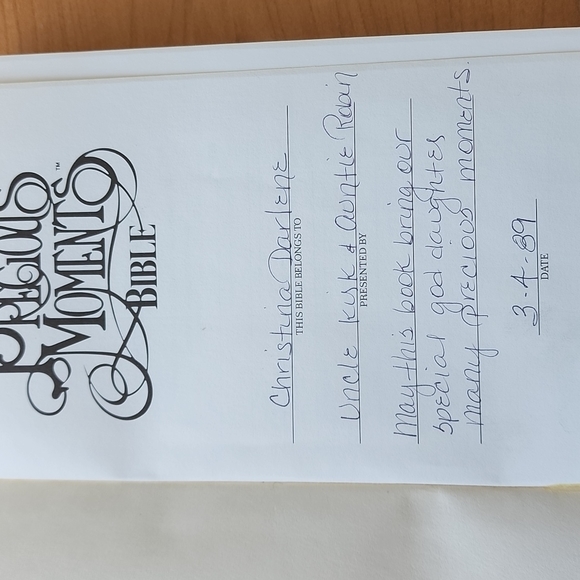 PRECIOUS
MOMENTS™
BIBLE
Christina Darlene
THIS BIBLE BELONGS TO
Uncle Kirk & Auntie Robin
PRESENTED BY
May this book bring our
special god daughter
many precious moments.
3-4-89
DATE